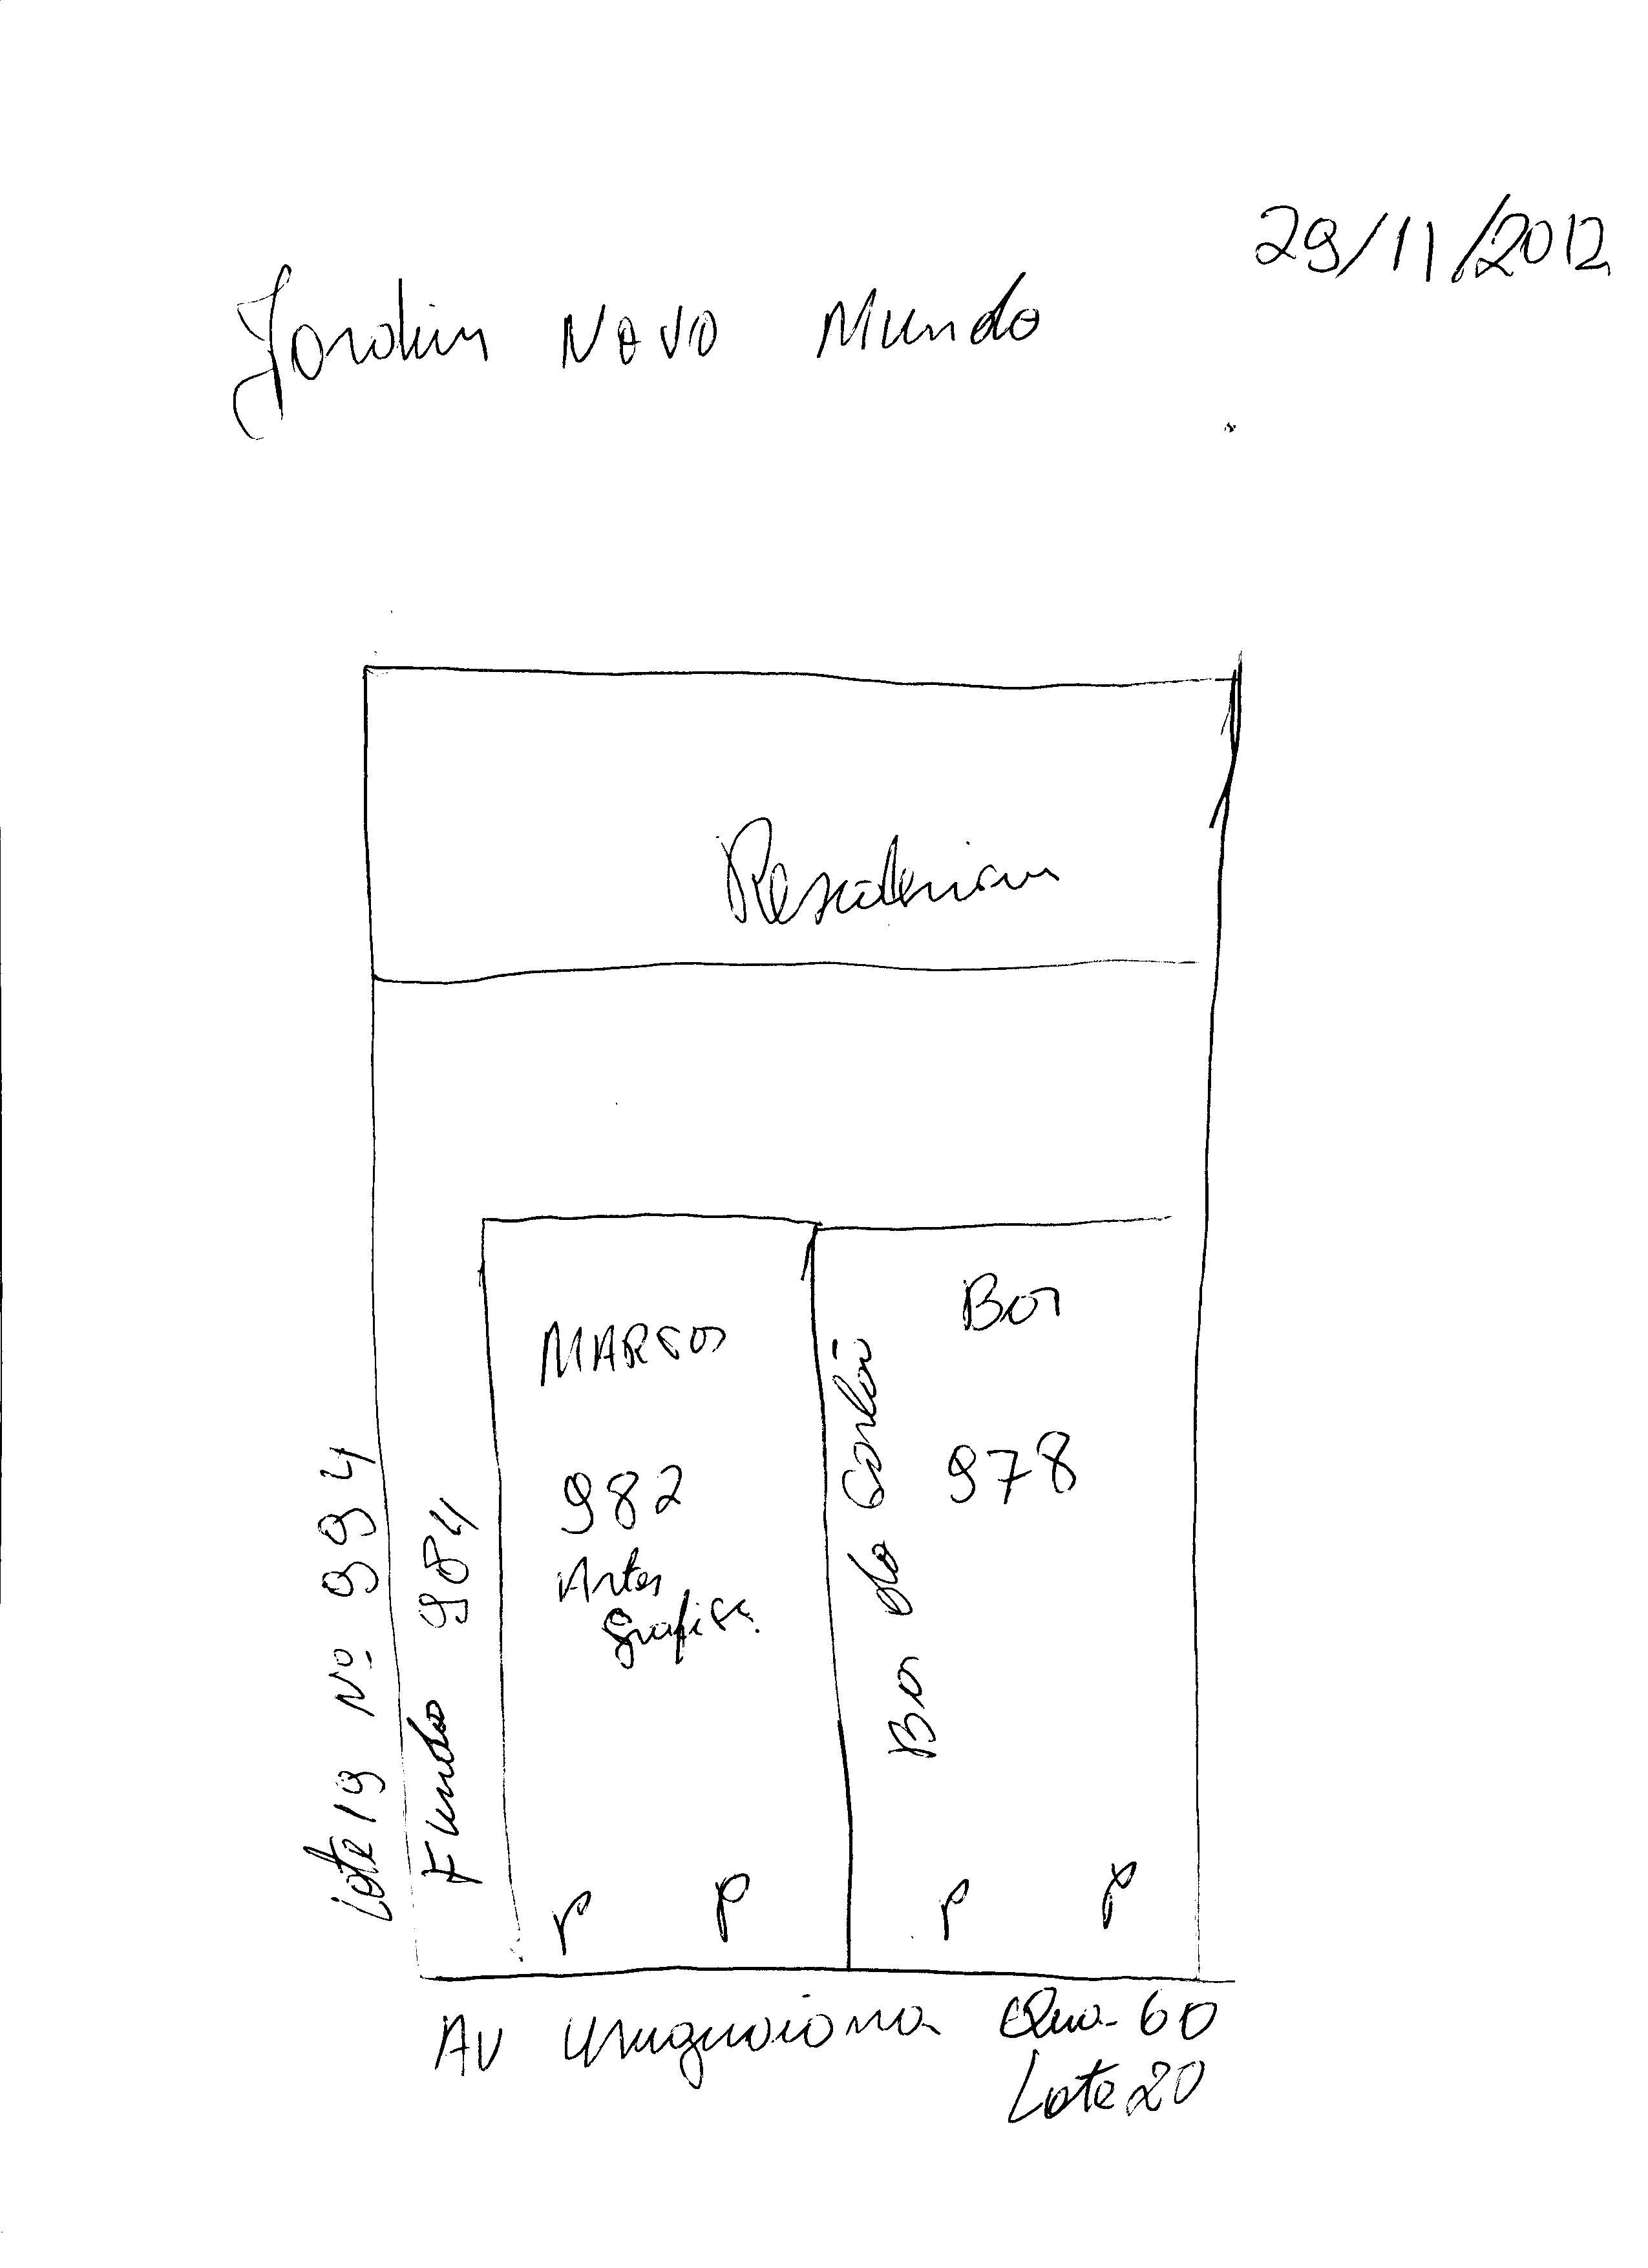 29/11/2012
Jardim Novo Mundo
Residencian
MARCOS
Bar
982
978
Artes
Grafica.
Bar do Carlão
Fundo 984
Lote 19 Nº 994
P P P P
AV Uruguaiana Qua-60
Lote 20